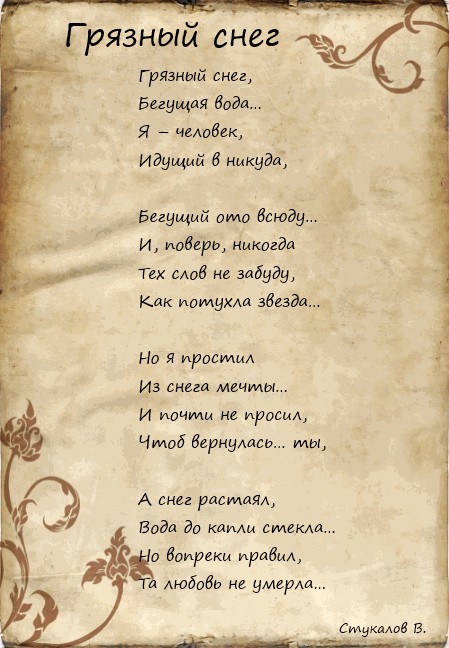 Грязный снег
Грязный снег,
Бегущая вода...
Я – человек,
Идущий в никуда,
Бегущий ото всюду...
И, поверь, никогда
Тех слов не забуду,
Как потухла звезда...
Но я простил
Из снега мечты...
И почти не просил,
Чтоб вернулась... ты,
А снег растаял,
Вода до капли стекла...
Но вопреки правил,
Та любовь не умерла...
Стукалов В.